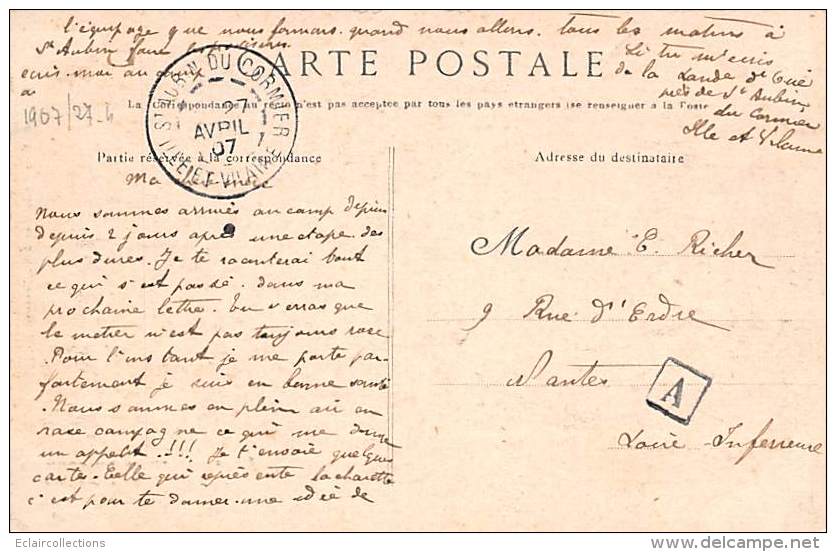 l'équipage que nous formons quand nous allons tous les matins à
St Aubin faire les provisions
CARTE POSTALE
Si tu m'écris
écris moi au camp
de la Lande d'Ouée
près de St Aubin
du Cormier
Ille et Vilaine
à
La Correspondance au recto n'est pas acceptée par tous les pays étrangers (se renseigner à la Poste
1907/27-4
ST AUBIN DU CORMIER
AVRIL
07
ILLE-ET-VILAINE
Partie réservée à la correspondance
Adresse du destinataire
Ma
Nous sommes arrivés au camp depuis
depuis 2 jours après une étape des
plus dures. Je te raconterai tout
ce qui s'est passé dans ma
prochaine lettre. Tu verras que
le métier n'est pas toujours rose
Pour l'instant je me porte par-
faitement je suis en bonne santé
. Nous sommes en plein air en
rase campagne ce qui me donne
un appétit..!!! Je t'envoie quelques
cartes. Celle qui représente la charette
c'est pour te donner une idée de
Madame E. Richer
9 Rue d'Erdre
Nantes
A
Loire Inférieure
Eclaircollections
www.delcampe.net